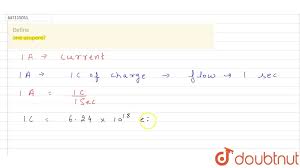 Define
one ampere?
1 A → Current
1A → 1C of charge → flow → 1 sec
1 A = 1C
1 Sec
1C = 6.24 x 10¹⁸ e
doubtnut